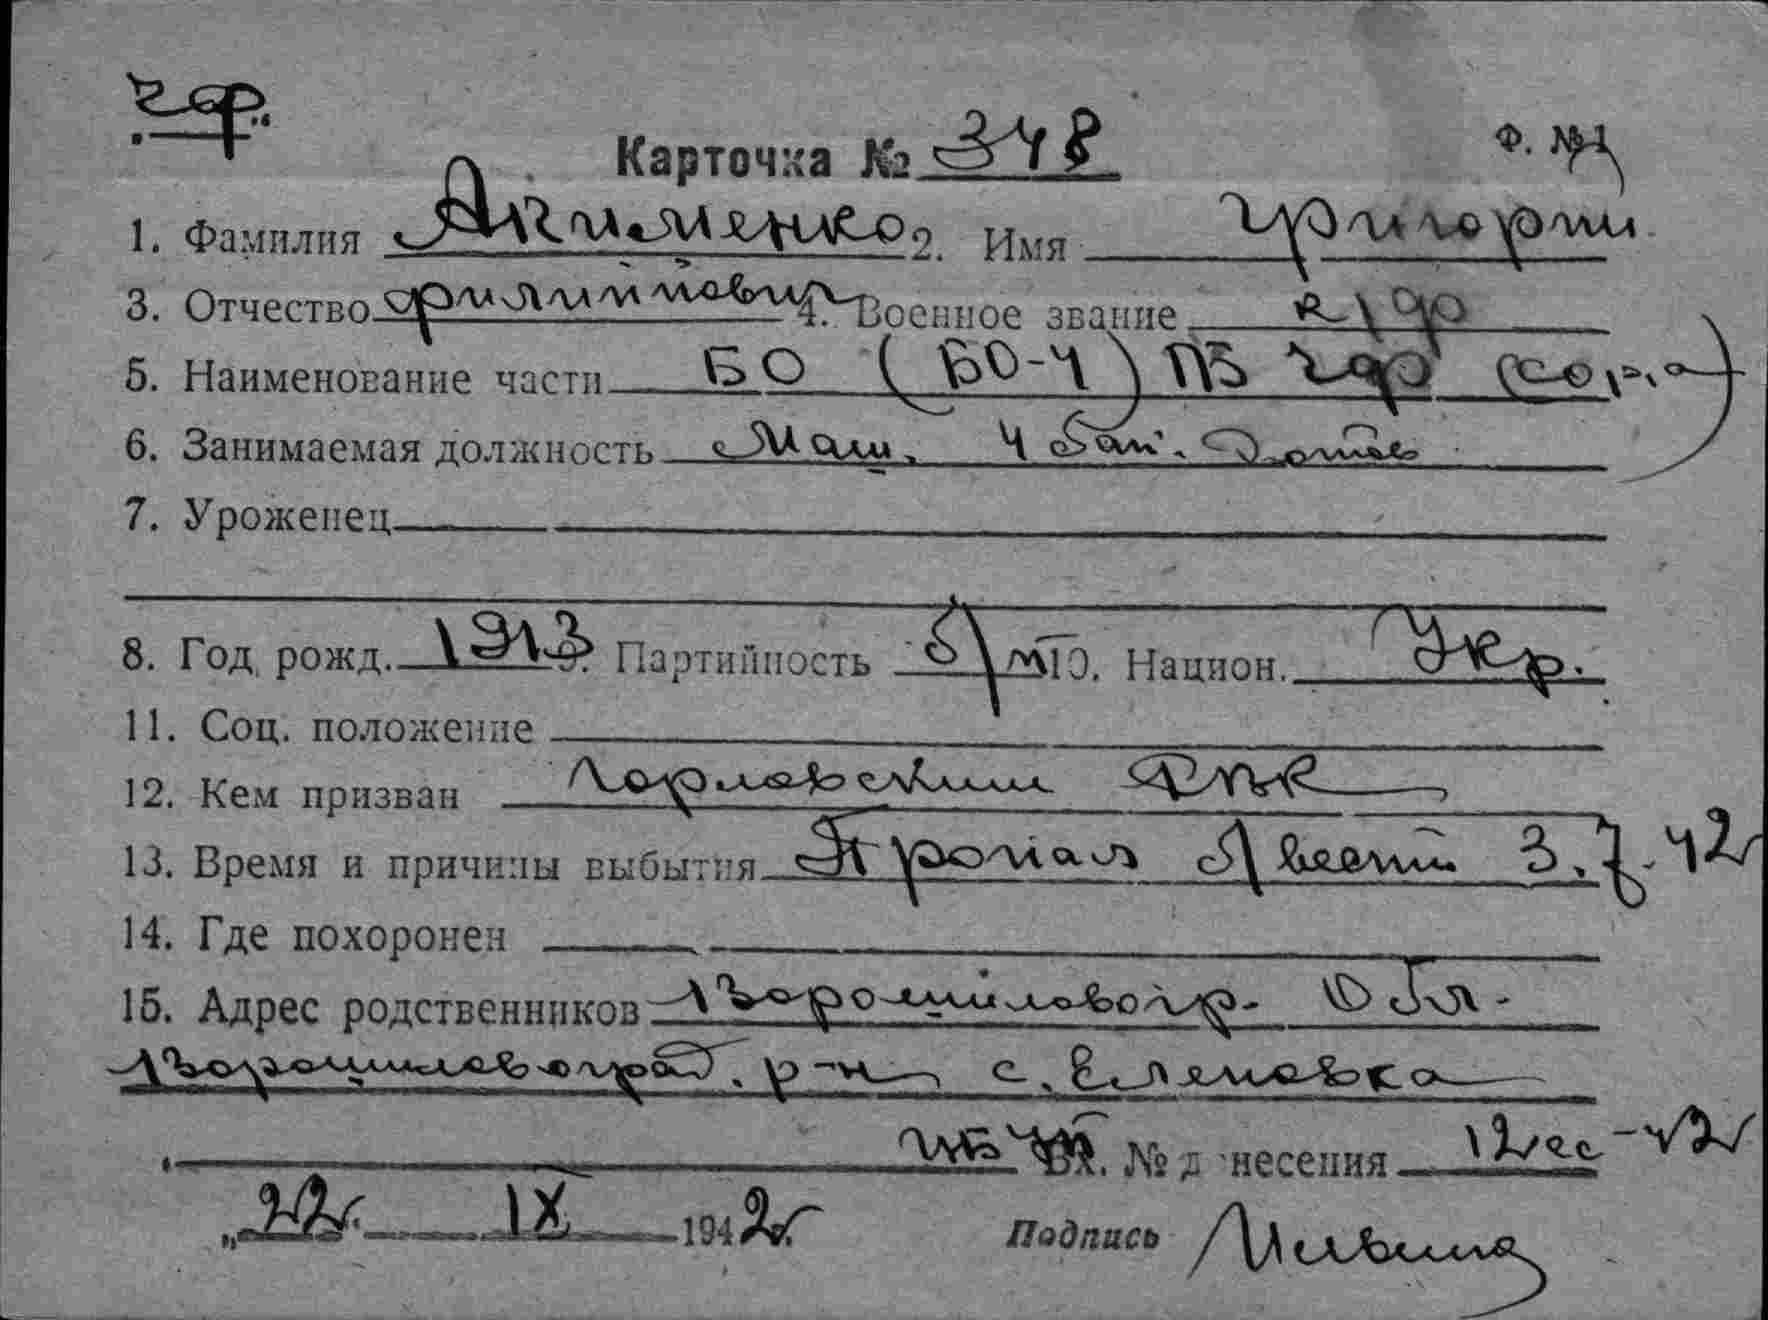 ЧФ.
Карточка № 348 Ф. №1
1. Фамилия Акименко 2. Имя Григорий
3. Отчество Филиппович 4. Военное звание к/ф
5. Наименование части БО (БО-4) ПБ ЧФ
6. Занимаемая должность Маш. 4 бат. Дотов
7. Уроженец
8. Год рожд. 1913 9. Партийность б/п 10. Национ. Укр.
11. Соц. положение
12. Кем призван Горловским РВК
13. Время и причины выбытия Пропал без вести 3.7.42
14. Где похоронен
15. Адрес родственников Ворошиловогр. обл.
Ворошиловоград. р-н с. Еленовка
Вх. № донесения 12сс-42
"22" IX 1942
Подпись